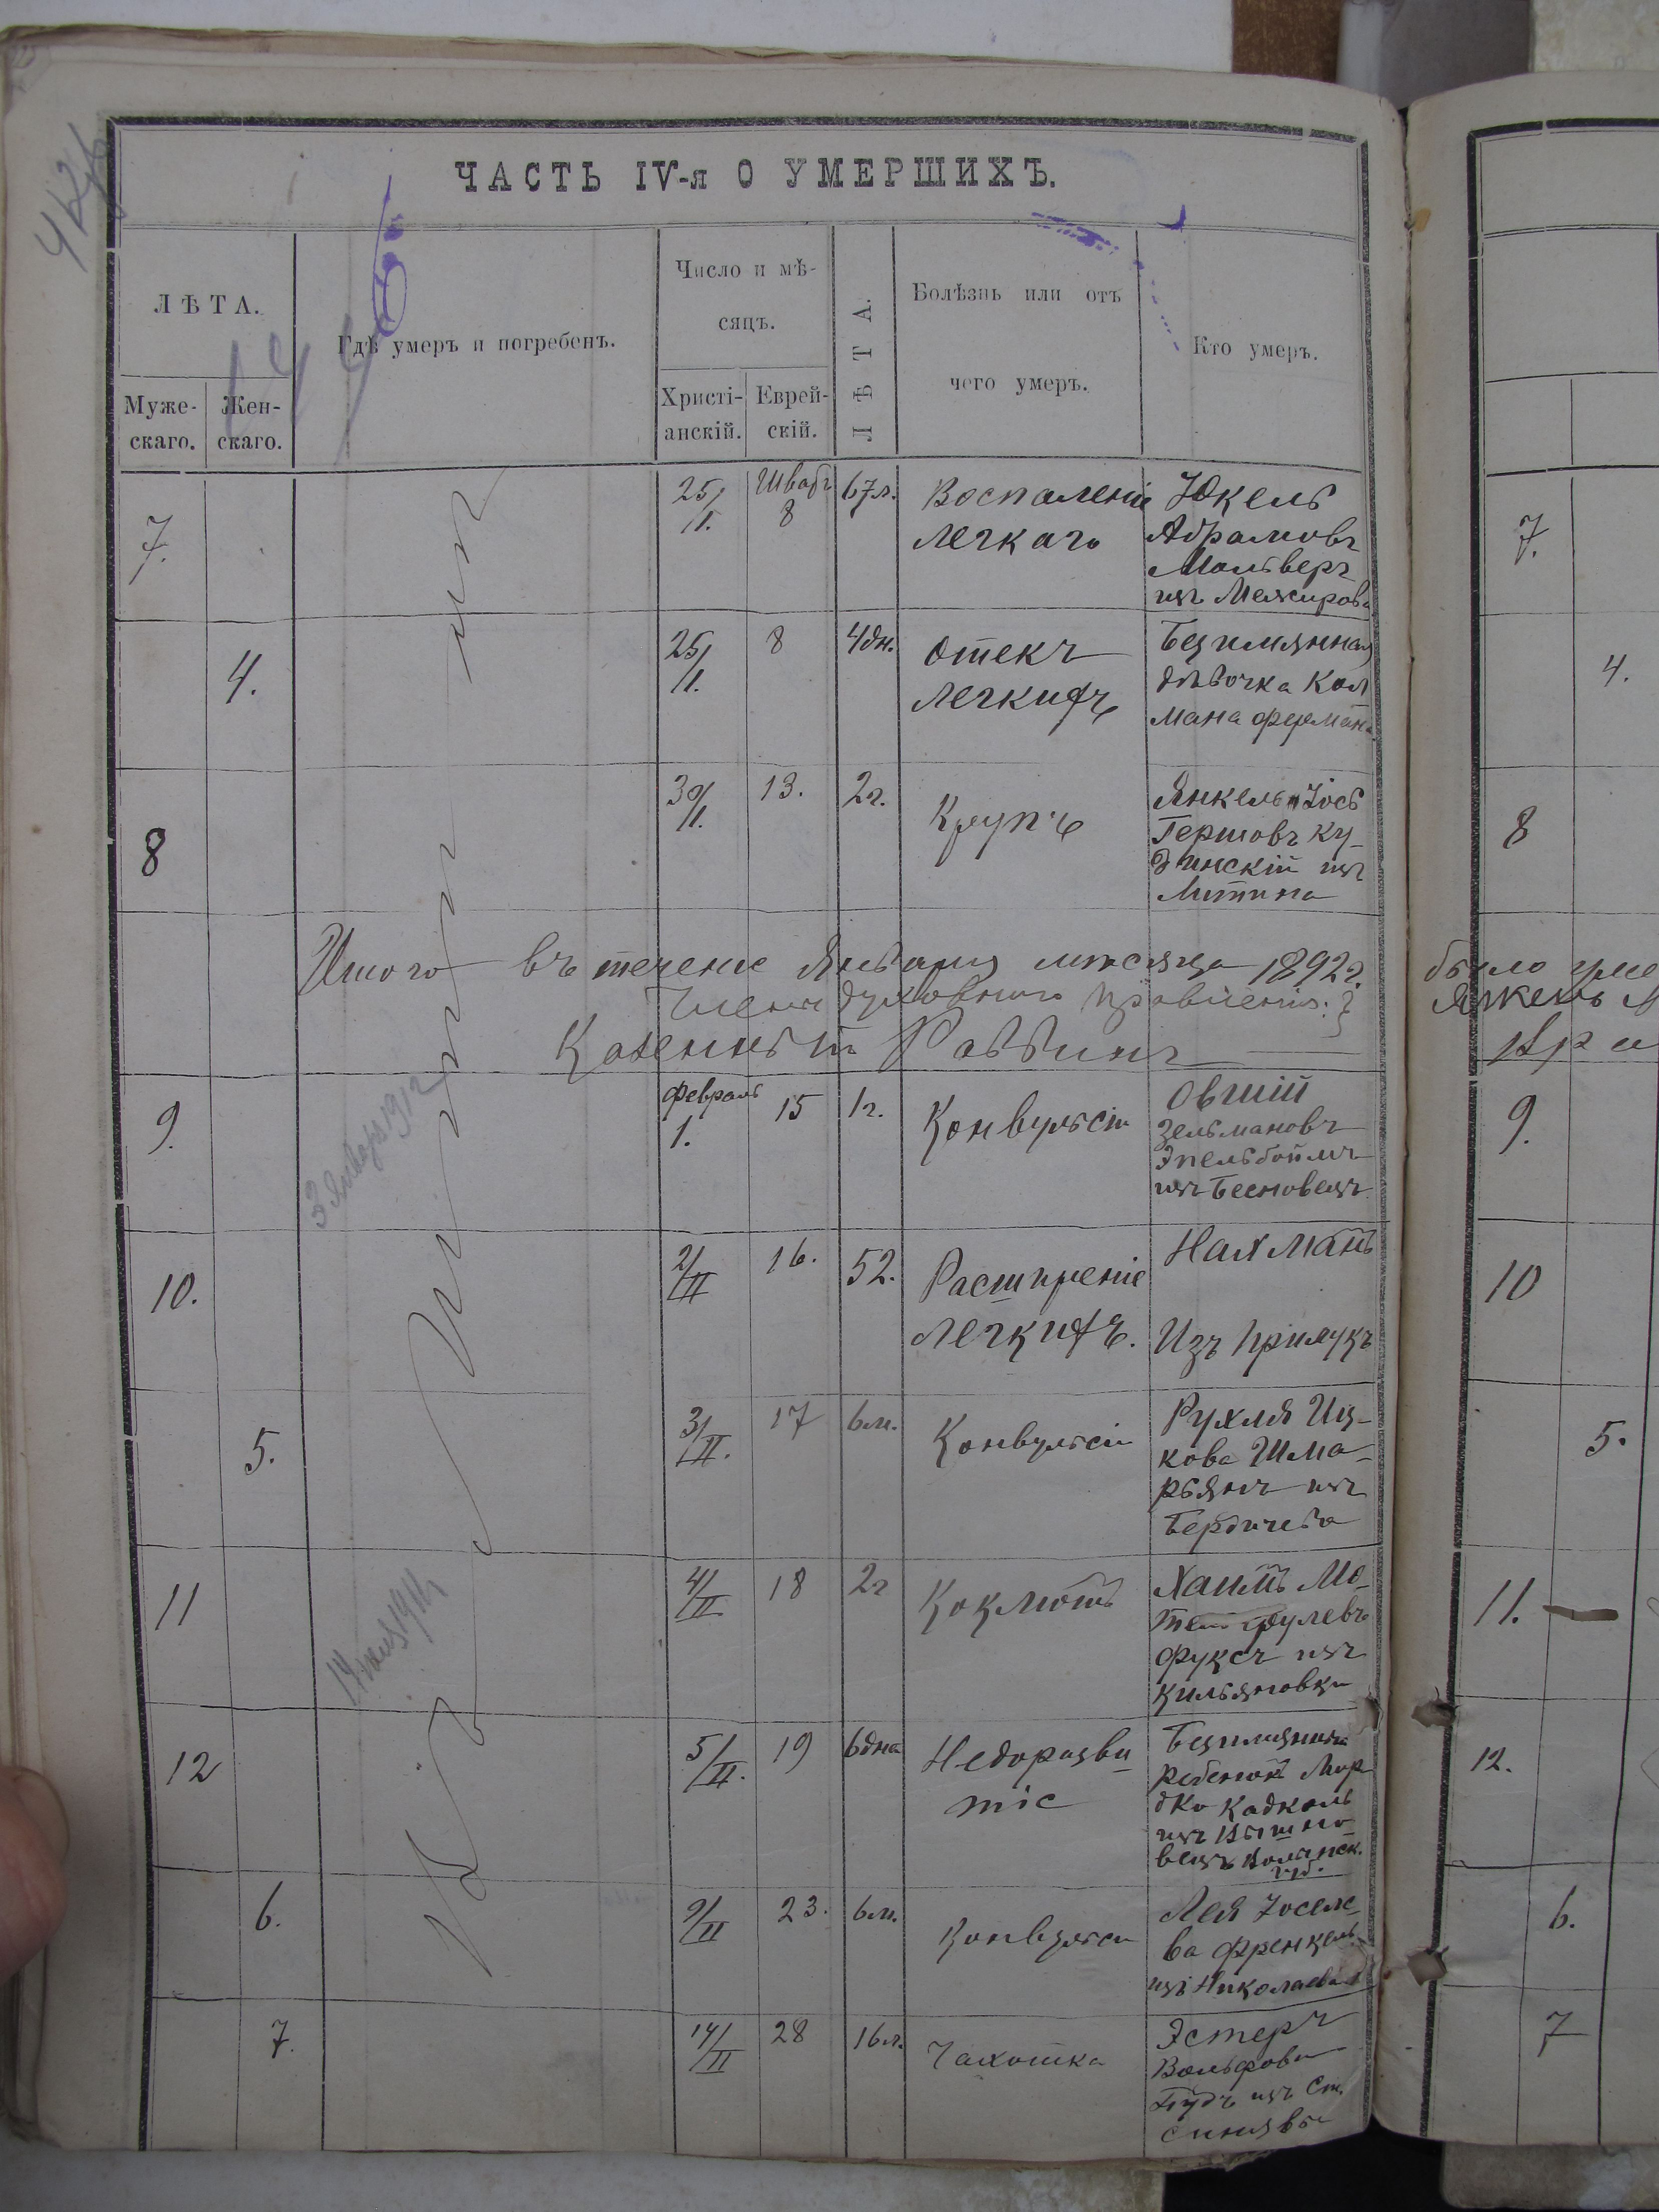 ЧАСТЬ IV-я О УМЕРШИХЪ.
ЛѢТА.
Муже-
скаго.
Жен-
скаго.
Гдѣ умеръ и погребенъ.
Число и мѣ-
сяцъ.
Христі-
анскій.
Еврей-
скій.
ЛѢТА.
Болѣзнь или отъ
чего умеръ.
Кто умеръ.
7.
25/I.
Шватъ
8
67л.
Воспаленіе
легкаго
Юкель
Абрамовъ
Мальверъ
изъ Межирова
7.
4.
25/I.
8
4дн.
отекъ
легкихъ
Безимянная
дѣвочка Кал
мана Фурмана
4.
8
30/I.
13.
2г.
Крупъ
Янкель Іось
Гершовъ Ку-
динскій изъ
Литина
8
Итого въ теченіе Января мѣсяца 1892г.
было уме
Члены духовнаго правленія:
Казенный Раввинъ
9.
Февраль
1.
15
1г.
Конвульсіи
Овшій
Зельмановъ
Эпельбоймъ
изъ
9.
3 Января 1912
10.
2/II
16.
52.
Расширеніе
легкихъ.
Нахманъ
Изъ Прилукъ
10
5.
3/II.
17
6м.
Конвульсіи
Рухля Иц-
кова Шма-
рьянъ изъ
Бердичева
5.
11
4/II
18
2г
Коклюшъ
Хаимъ Мо-
Фуксъ изъ
Кильяновки
11.
12
5/II.
19
6дня
Недоразви
тіе
Безимянный
ребенокъ Мор
дко Кадкель
изъ Вышно-
вецъ Волынск.
губ.
12.
6.
9/II
23.
6м.
Конвульсіи
Лея Іоселе-
ва Френкель
изъ Николаева
6.
7.
14/II
28
16л.
Чахотка
Эстеръ
Вольфова
изъ Ст.
Синявы
7